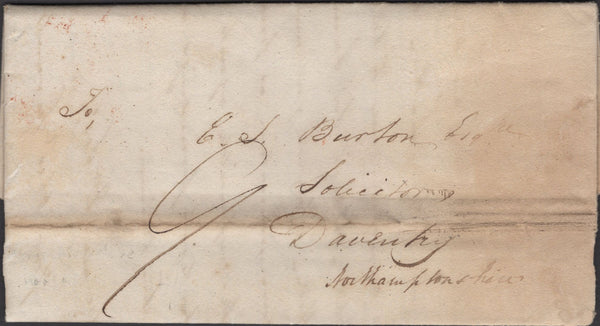 To,
E. S. Burton Esqre
Solicitor
9
Daventry
Northamptonshire